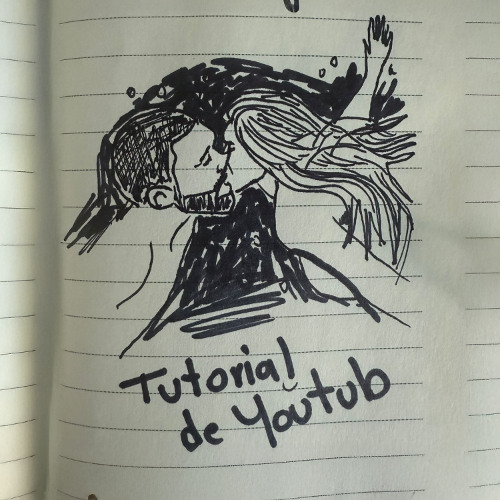 Tutorial
de Youtub